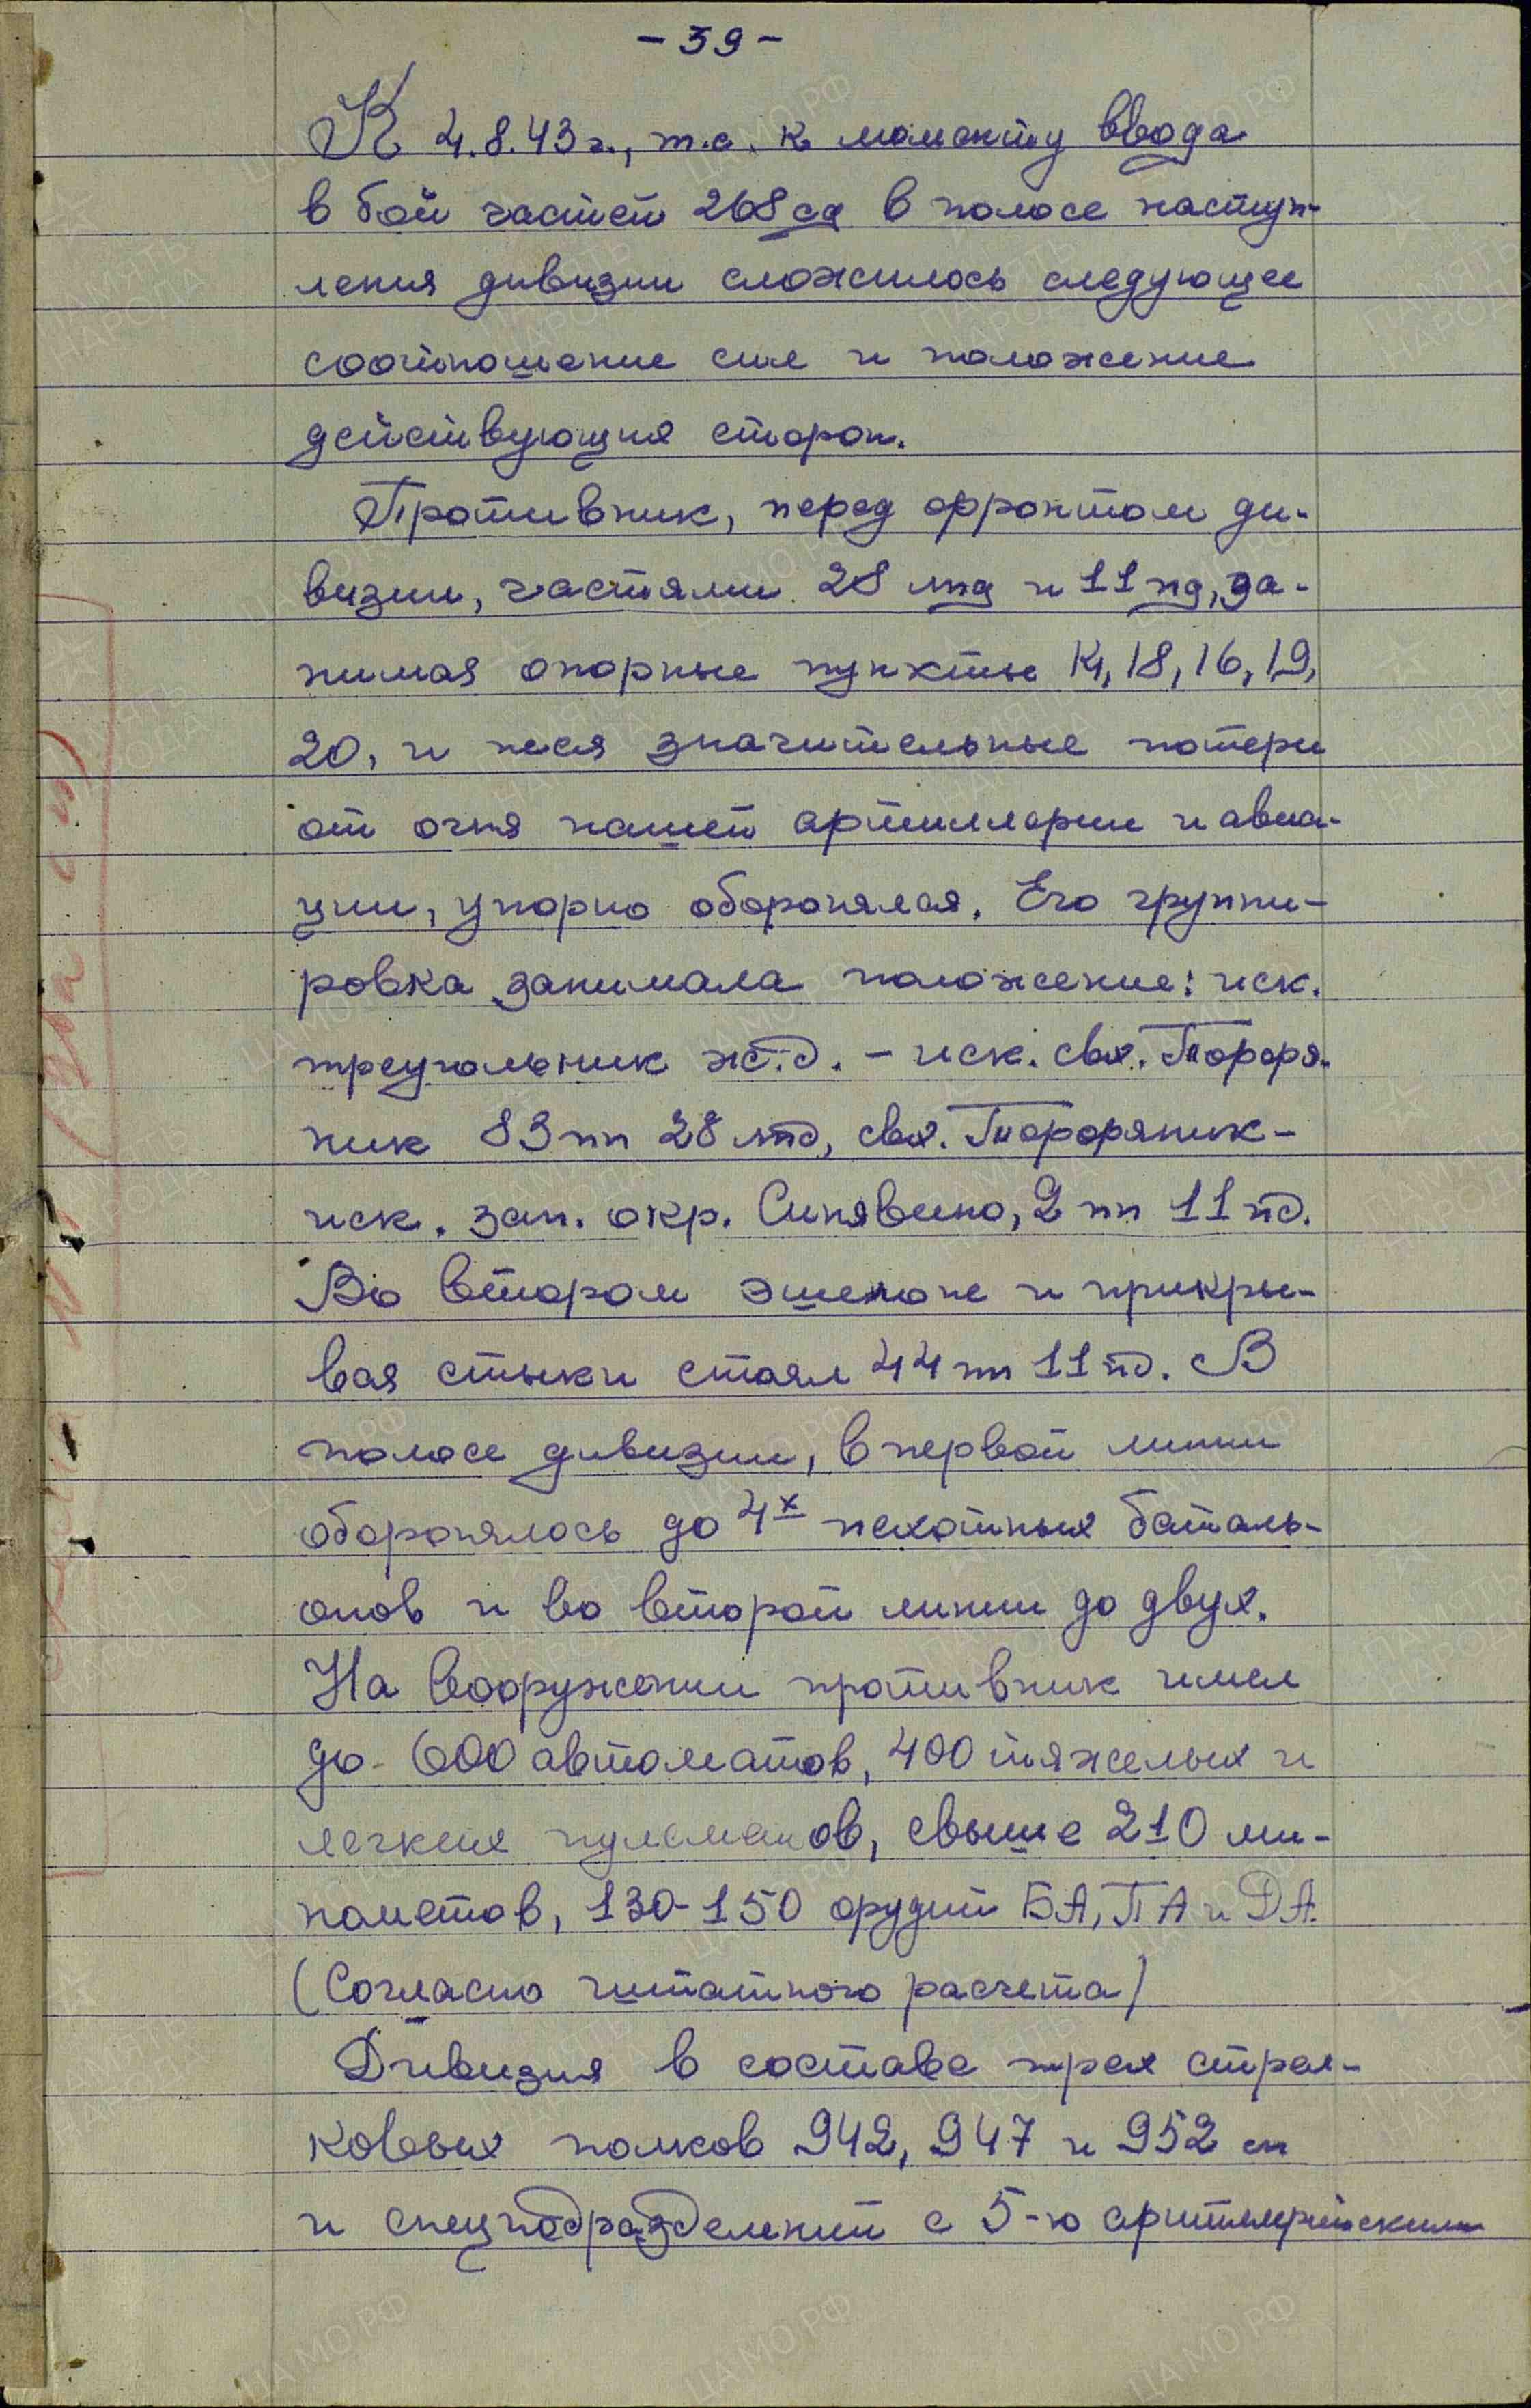 - 39 -
К 4.8.43 г., т.е. к моменту ввода
в бой частей 268 сд в полосе наступ-
ления дивизии сложилось следующее
соотношение сил и положение
действующих сторон.
Противник, перед фронтом ди-
визии, частями 28 лпд и 11 пд, за-
нимая опорные пункты К, 18, 16, 19,
20, и неся значительные потери
от огня нашей артиллерии и авиа-
ции, упорно оборонялся. Его группи-
ровка занимала положение: иск.
треугольник ж.д. - иск. свх. Торфя-
ник 83 пп 28 лпд, свх. Торфяник -
иск. зап. окр. Синявино, 2 пп 11 пд.
Во втором эшелоне и прикры-
вая стыки стоял 44 пп 11 пд. В
полосе дивизии, в первой линии
оборонялось до 4х пехотных баталь-
онов и во второй линии до двух.
На вооружении противник имел
до 600 автоматов, 400 тяжелых и
легких пулеметов, свыше 210 ми-
нометов, 130-150 орудий БА, ПА и ДА.
(Согласно штатного расчета)
Дивизия в составе трех стрел-
ковых полков 942, 947 и 952 сп
и спецподразделений с 5-ю артиллерийскими
ЦАМО РФ
ПАМЯТЬ НАРОДА